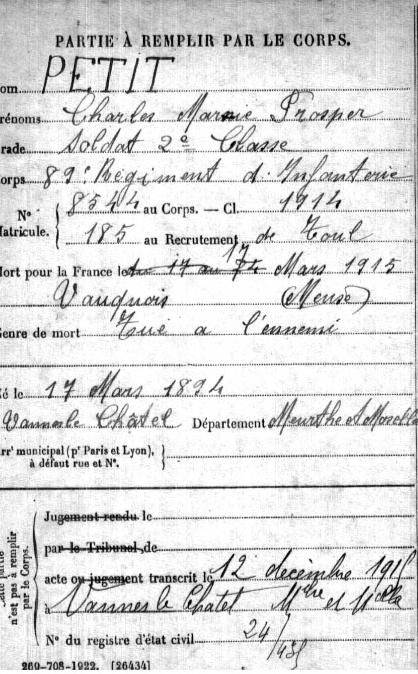 PARTIE À REMPLIR PAR LE CORPS.
om PETIT
rénoms Charles Marie Prosper
rade Soldat 2e Classe
orps 89e Régiment d'Infanterie
N° 8544 au Corps. — Cl. 1914
atricule. 185 au Recrutement de Toul
ort pour la France le du 17 au 17 Mars 1915
Vauquois (Meuse)
enre de mort Tué a l'ennemi
é le 17 Mars 1894
Vannes le Châtel Département Meurthe et Moselle
rr' municipal (pr Paris et Lyon),
à défaut rue et N°.
Cette partie n'est pas à remplir par le Corps.
Jugement rendu le
par le Tribunal de
acte ou jugement transcrit le 12 décembre 191
à Vannes le Chatel Mthe et Mlle
N° du registre d'état civil 24/
269-708-1922. [26434]